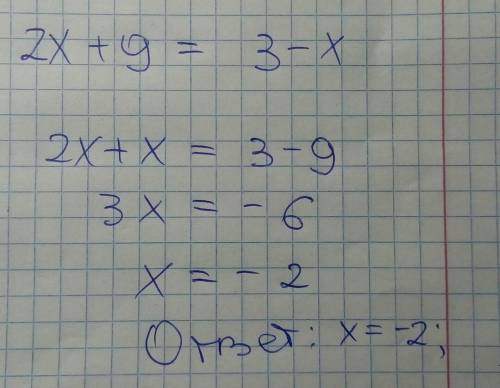 2x + 9 = 3 - x
2x + x = 3 - 9
3x = - 6
x = - 2
Ответ: x = -2;